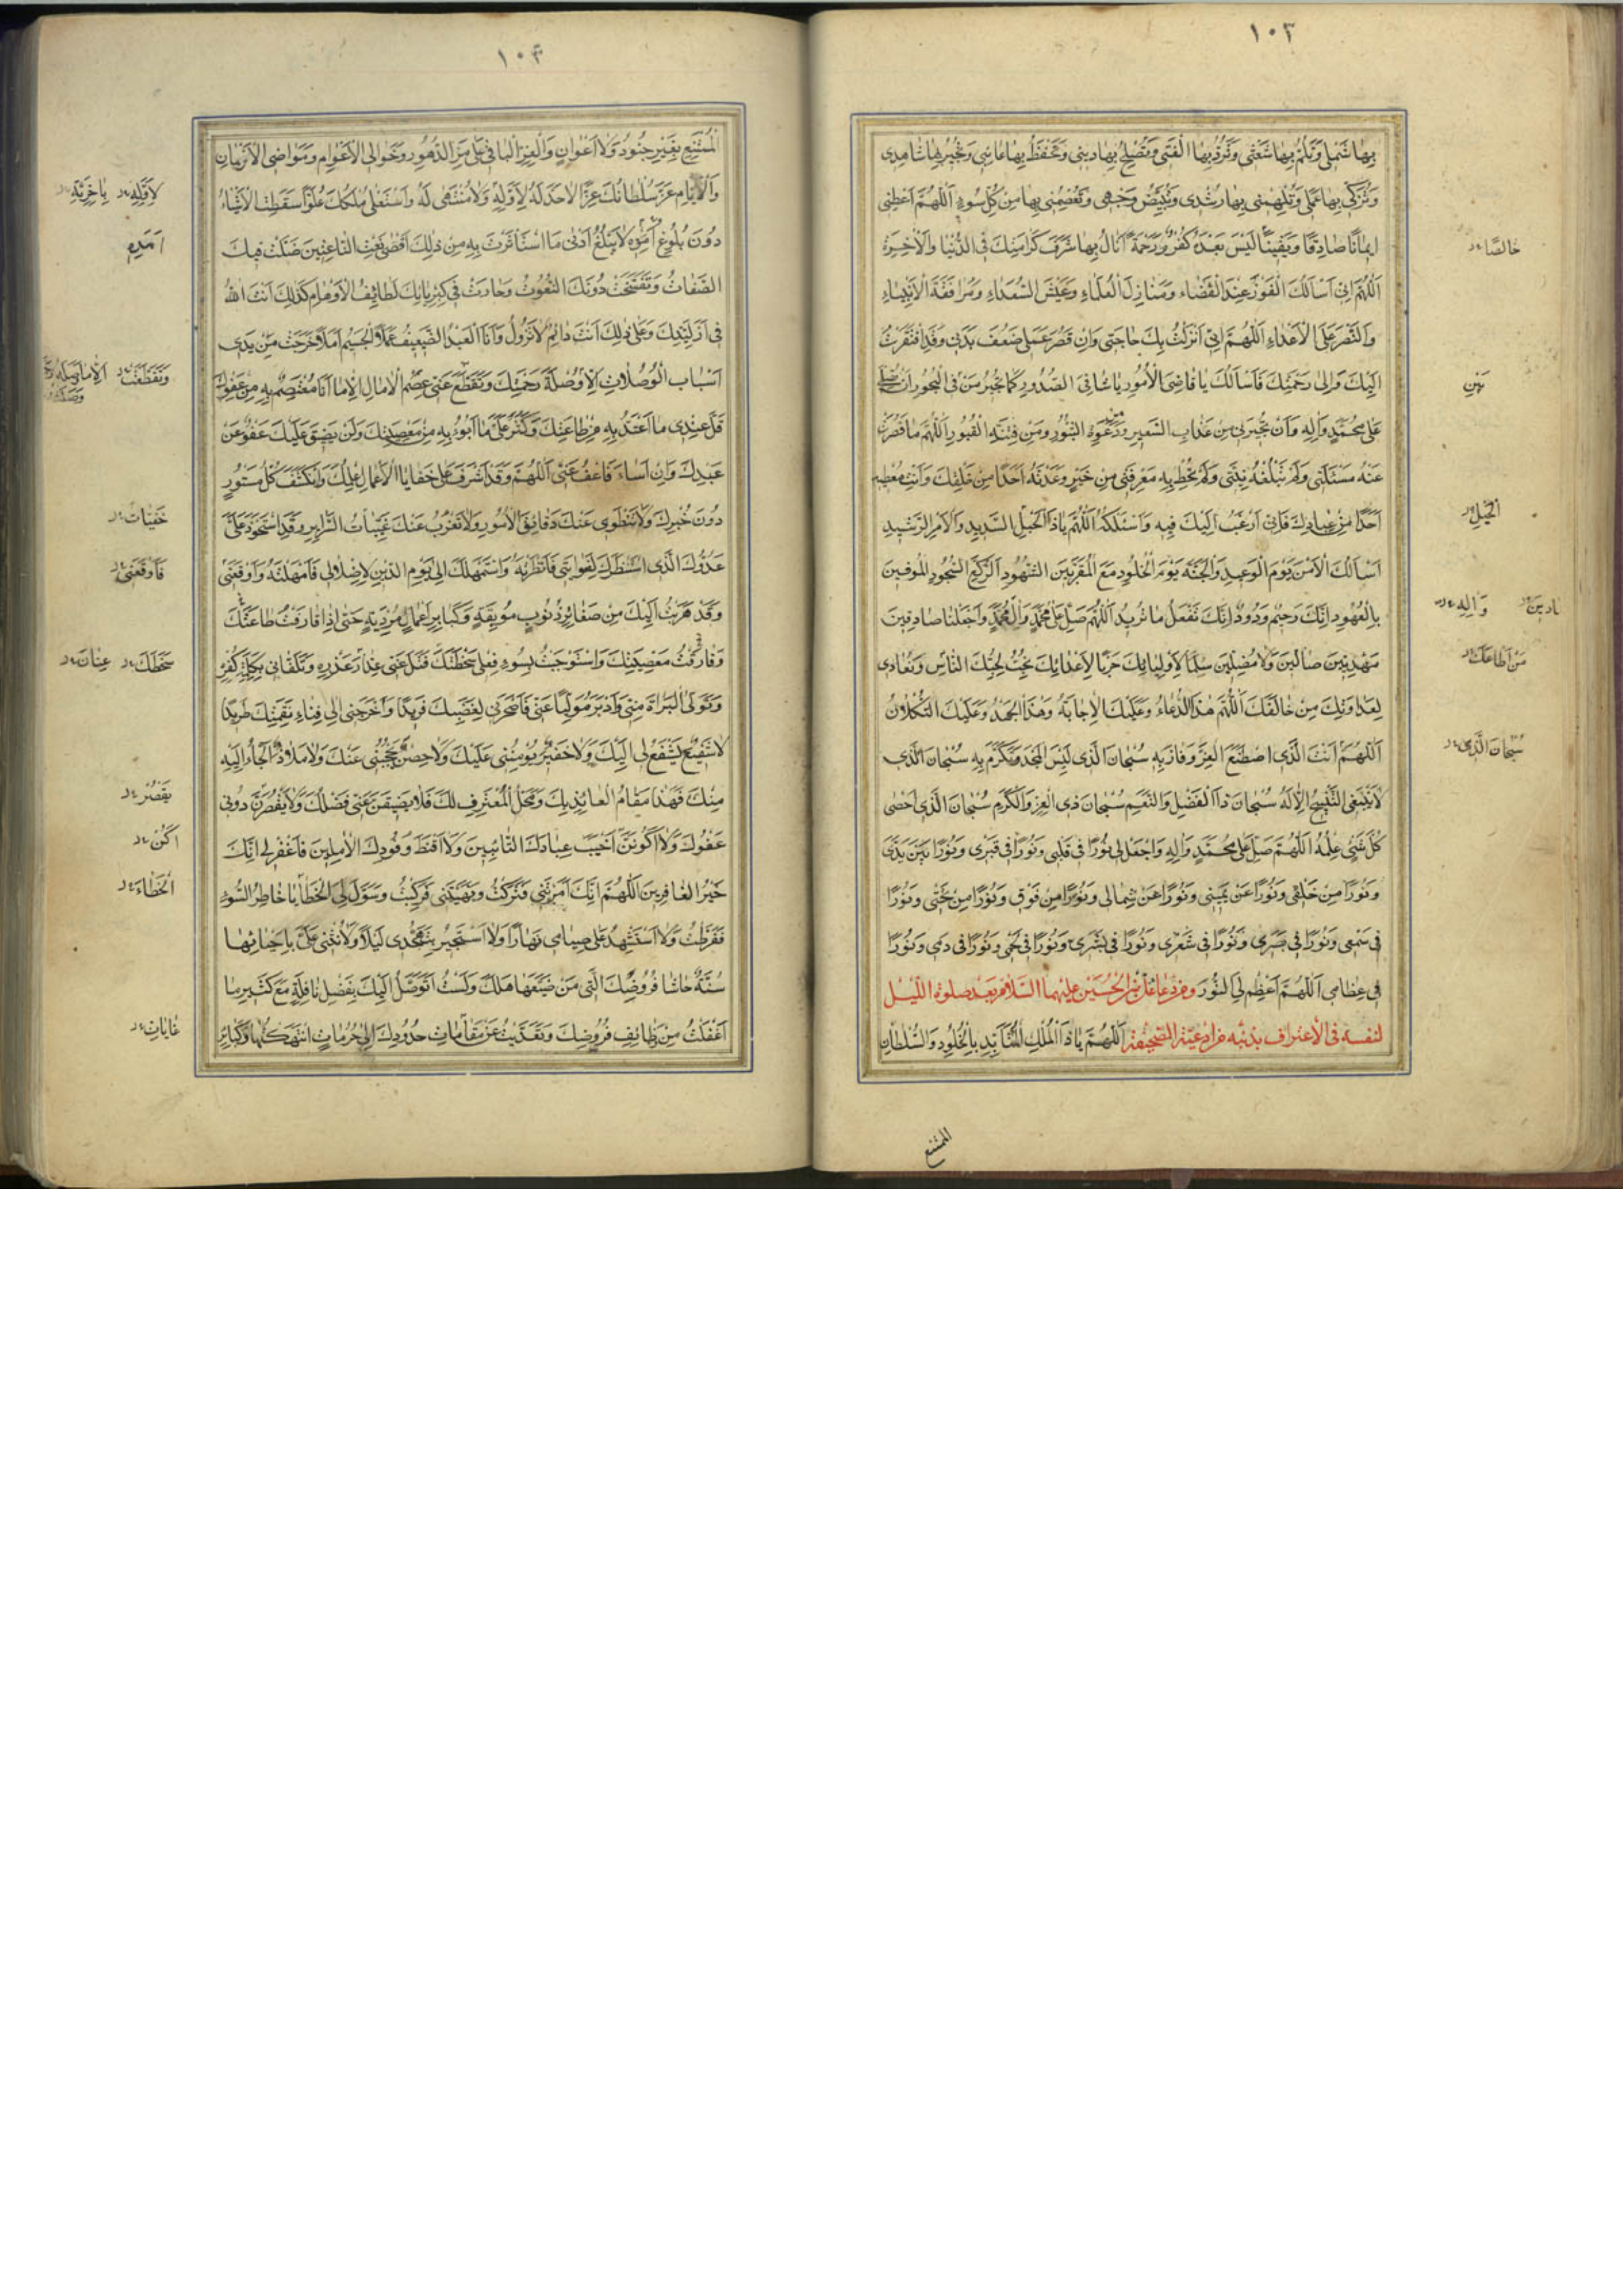 ١٠٣
بِهَا شَمْلِي وَتَلُمُّ بِهَا شَعَثِي وَتَرُدُّ بِهَا الْفَتِي وَتُصْلِحُ بِهَا دِينِي وَتَحْفَظُ بِهَا غَائِبِي وَتُجِيرُ بِهَا شَاهِدِي
وَتُزَكِّي بِهَا عَمَلِي وَتُلْهِمُنِي بِهَا رُشْدِي وَتُبَيِّضُ وَجْهِي وَتَعْصِمُنِي بِهَا مِنْ كُلِّ سُوءٍ اَللّٰهُمَّ اَعْطِنِي
اِيمَانًا صَادِقًا وَيَقِينًا لَيْسَ بَعْدَهُ كُفْرٌ وَرَحْمَةً اَنَالُ بِهَا شَرَفَ كَرَامَتِكَ فِي الدُّنْيَا وَالْاٰخِرَةِ
خَالِصًا
اَللّٰهُمَّ اِنِّي اَسْأَلُكَ الْفَوْزَ عِنْدَ الْقَضَاءِ وَمَنَازِلَ الْعُلَمَاءِ وَعَيْشَ السُّعَدَاءِ وَمُرَافَقَةَ الْاَنْبِيَاءِ
وَالنَّصْرَ عَلَى الْاَعْدَاءِ اَللّٰهُمَّ اِنِّي اَنْزَلْتُ بِكَ حَاجَتِي وَاِنْ قَصُرَ عَمَلِي ضَعُفَ بَدَنِي وَقَدِ افْتَقَرْتُ
اِلَيْكَ وَاِلَى رَحْمَتِكَ فَاَسْأَلُكَ يَا قَاضِيَ الْاُمُورِ يَا شَافِيَ الصُّدُورِ كَمَا تُجِيرُ مَنْ فِي الْبُحُورِ اَنْ تُصَلِّيَ
بَيْنَ
عَلَى مُحَمَّدٍ وَاٰلِهِ وَاَنْ تُجِيرَنِي مِنْ عَذَابِ السَّعِيرِ وَمِنْ دَعْوَةِ الثُّبُورِ وَمِنْ فِتْنَةِ الْقُبُورِ اَللّٰهُمَّ مَا قَصُرَتْ
عَنْهُ مَسْئَلَتِي وَلَمْ تَبْلُغْهُ نِيَّتِي وَلَمْ تُحِطْ بِهِ مَعْرِفَتِي مِنْ خَيْرٍ وَعَدْتَهُ اَحَدًا مِنْ خَلْقِكَ وَاَنْتَ مُعْطِيهِ
اَحَدًا مِنْ عِبَادِكَ فَاِنِّي اَرْغَبُ اِلَيْكَ فِيهِ وَاَسْئَلُكَهُ اَللّٰهُمَّ يَا ذَا الْحَبْلِ الشَّدِيدِ وَالْاَمْرِ الرَّشِيدِ
اَسْأَلُكَ الْاَمْنَ يَوْمَ الْوَعِيدِ وَالْجَنَّةَ يَوْمَ الْخُلُودِ مَعَ الْمُقَرَّبِينَ الشُّهُودِ الرُّكَّعِ السُّجُودِ الْمُوفِينَ
بِالْعُهُودِ اِنَّكَ رَحِيمٌ وَدُودٌ اِنَّكَ تَفْعَلُ مَا تُرِيدُ اَللّٰهُمَّ صَلِّ عَلَى مُحَمَّدٍ وَاٰلِ مُحَمَّدٍ وَاجْعَلْنَا صَادِقِينَ
وَاٰلِهِ
مَهْدِيِّينَ ضَالِّينَ وَلَا مُضِلِّينَ سِلْمًا لِاَوْلِيَائِكَ حَرْبًا لِاَعْدَائِكَ نُحِبُّ لِحُبِّكَ النَّاسَ وَنُعَادِي
مَنْ اَطَاعَكَ
لِعَدَاوَتِكَ مِنْ خَالَفَكَ اَللّٰهُمَّ هٰذَا الدُّعَاءُ وَعَلَيْكَ الْاِجَابَةُ وَهٰذَا الْجَهْدُ وَعَلَيْكَ التُّكْلَانُ
اَللّٰهُمَّ اَنْتَ الَّذِي اصْطَنَعَ الْعِزَّ وَفَازَ بِهِ سُبْحَانَ الَّذِي لَبِسَ الْمَجْدَ وَتَكَرَّمَ بِهِ سُبْحَانَ الَّذِي
سُبْحَانَ الَّذِي
لَا يَنْبَغِي التَّسْبِيحُ اِلَّا لَهُ سُبْحَانَ ذَا الْفَضْلِ وَالنِّعَمِ سُبْحَانَ ذِي الْعِزِّ وَالْكَرَمِ سُبْحَانَ الَّذِي اَحْصَى
كُلَّ شَيْءٍ عِلْمُهُ اَللّٰهُمَّ صَلِّ عَلَى مُحَمَّدٍ وَاٰلِهِ وَاجْعَلْ لِي نُورًا فِي قَلْبِي وَنُورًا فِي قَبْرِي وَنُورًا بَيْنَ يَدَيَّ
وَنُورًا مِنْ خَلْفِي وَنُورًا عَنْ يَمِينِي وَنُورًا عَنْ شِمَالِي وَنُورًا مِنْ فَوْقِي وَنُورًا مِنْ تَحْتِي وَنُورًا
فِي سَمْعِي وَنُورًا فِي بَصَرِي وَنُورًا فِي شَعْرِي وَنُورًا فِي بَشَرِي وَنُورًا فِي لَحْمِي وَنُورًا فِي دَمِي وَنُورًا
فِي عِظَامِي اَللّٰهُمَّ اَعْظِمْ لِيَ النُّورَ وَمِنْ دُعَاءِ عَلِيِّ بْنِ الْحُسَيْنِ عَلَيْهِمَا السَّلَامُ بَعْدَ صَلٰوةِ اللَّيْلِ
لِنَفْسِهِ فِي الْاِعْتِرَافِ بِذَنْبِهِ مِنْ اَدْعِيَةِ الصَّحِيفَةِ اَللّٰهُمَّ يَا ذَا الْمُلْكِ الْمُتَأَبِّدِ بِالْخُلُودِ وَالسُّلْطَانِ
الممتنع
١٠٤
الْمُمْتَنِعِ بِغَيْرِ جُنُودٍ وَلَا اَعْوَانٍ وَالْعِزِّ الْبَاقِي عَلَى مَرِّ الدُّهُورِ وَخَوَالِي الْاَعْوَامِ وَمَوَاضِي الْاَزْمَانِ
وَالْاَيَّامِ عَزَّ سُلْطَانُكَ عِزًّا لَا حَدَّ لَهُ لِاَوَّلِهِ وَلَا مُنْتَهَى لَهُ وَاسْتَعْلَى مُلْكُكَ عُلُوًّا سَقَطَتِ الْاَشْيَاءُ
لِاَوَّلِهِ بِاٰخِرِيَّةٍ
دُونَ بُلُوغِ اَمَدِهِ لَا يَبْلُغُ اَدْنَى مَا اسْتَأْثَرْتَ بِهِ مِنْ ذٰلِكَ اَقْصَى نَعْتِ النَّاعِتِينَ ضَلَّتْ فِيكَ
اَمَدِهِ
الصِّفَاتُ وَتَفَسَّخَتْ دُونَكَ النُّعُوتُ وَحَارَتْ فِي كِبْرِيَائِكَ لَطَائِفُ الْاَوْهَامِ كَذٰلِكَ اَنْتَ اللهُ
فِي اَزَلِيَّتِكَ وَعَلَى ذٰلِكَ اَنْتَ دَائِمٌ لَا تَزُولُ وَاَنَا الْعَبْدُ الضَّعِيفُ عَمَلًا الْجَسِيمُ اَمَلًا خَرَجَتْ مِنْ يَدِي
اَسْبَابُ الْوُصُلَاتِ اِلَّا وُصْلَةَ رَحْمَتِكَ وَتَقَطَّعَ عَنِّي عِصَمُ الْاٰمَالِ اِلَّا مَا اَنَا مُعْتَصِمٌ بِهِ مِنْ عَفْوِكَ
وَتَقَطَّعَتْ
قَلَّ عِنْدِي مَا اَعْتَدُّ بِهِ مِنْ طَاعَتِكَ وَكَثُرَ عَلَيَّ مَا اَبُوءُ بِهِ مِنْ مَعْصِيَتِكَ وَلَنْ يَضِيقَ عَلَيْكَ عَفْوٌ عَنْ
عَبْدِكَ وَاِنْ اَسَاءَ فَاعْفُ عَنِّي اَللّٰهُمَّ وَقَدْ اَشْرَفَ عَلَى خَفَايَا الْاَعْمَالِ عِلْمُكَ وَانْكَشَفَ كُلُّ مَسْتُورٍ
دُونَ خُبْرِكَ وَلَا تَنْطَوِي عَنْكَ دَقَائِقُ الْاُمُورِ وَلَا تَعْزُبُ عَنْكَ غَيِّبَاتُ السَّرَائِرِ وَقَدِ اسْتَحْوَذَ عَلَيَّ
خَفِيَّاتُ
عَدُوُّكَ الَّذِي اسْتَنْظَرَكَ لِغَوَايَتِي فَاَنْظَرْتَهُ وَاسْتَمْهَلَكَ اِلَى يَوْمِ الدِّينِ لِاِضْلَالِي فَاَمْهَلْتَهُ وَاَوْقَعَنِي
فَاَوْقَعَنِي
وَقَدْ هَرَبْتُ اِلَيْكَ مِنْ صَغَائِرِ ذُنُوبٍ مُوبِقَةٍ وَكَبَائِرِ اَعْمَالٍ مُرْدِيَةٍ حَتَّى اِذَا قَارَفْتُ طَاعَتَكَ
وَفَارَقْتُ مَعْصِيَتَكَ وَاسْتَوْجَبْتُ بِسُوءِ فِعْلِي سَخْطَتَكَ فَتَلَ عَنِّي عِذَارَ غَدْرِهِ وَتَلَقَّانِي بِكَلِمَةِ كُفْرِهِ
سَخَطَكَ عِنَانَ
وَتَوَلَّى الْبَرَاءَةَ مِنِّي وَاَدْبَرَ مُوَلِّيًا عَنِّي فَاَصْحَرَنِي لِغَضَبِكَ فَرِيدًا وَاَخْرَجَنِي اِلَى فِنَاءِ نِقْمَتِكَ طَرِيدًا
لَا شَفِيعٌ يَشْفَعُ لِي اِلَيْكَ وَلَا خَفِيرٌ يُؤْمِنُنِي عَلَيْكَ وَلَا حِصْنٌ يَحْجُبُنِي عَنْكَ وَلَا مَلَاذٌ اَلْجَأُ اِلَيْهِ
مِنْكَ فَهٰذَا مَقَامُ الْعَائِذِ بِكَ وَمَحَلُّ الْمُعْتَرِفِ لَكَ فَلَا يَضِيقَنَّ عَنِّي فَضْلُكَ وَلَا يَقْصُرَنَّ دُونِي
يَقْصُرْ
عَفْوُكَ وَلَا اَكُونَنَّ اَخْيَبَ عِبَادِكَ التَّائِبِينَ وَلَا اَقْنَطَ وُفُودِكَ الْاٰمِلِينَ فَاغْفِرْ لِي اِنَّكَ
اَكُنْ
خَيْرُ الْغَافِرِينَ اَللّٰهُمَّ اِنَّكَ اَمَرْتَنِي فَتَرَكْتُ وَنَهَيْتَنِي فَرَكِبْتُ وَسَوَّلَ لِيَ الْخَطَايَا خَاطِرُ السُّوءِ
الْخَطَاءَ
فَفَرَّطْتُ وَلَا اَسْتَشْهِدُ عَلَى صِيَامِي نَهَارًا وَلَا اَسْتَجِيرُ بِتَهَجُّدِي لَيْلًا وَلَا تُثْنِي عَلَيَّ بِاِحْيَائِهَا
سُنَّةٌ حَاشَا فُرُوضِكَ الَّتِي مَنْ ضَيَّعَهَا هَلَكَ وَلَسْتُ اَتَوَسَّلُ اِلَيْكَ بِفَضْلِ نَافِلَةٍ مَعَ كَثِيرِ مَا
اَغْفَلْتُ مِنْ وَظَائِفِ فُرُوضِكَ وَتَعَدَّيْتُ عَنْ مَقَامَاتِ حُدُودِكَ اِلَى حُرُمَاتٍ انْتَهَكْتُهَا وَكَبَائِرِ
غَايَاتِ